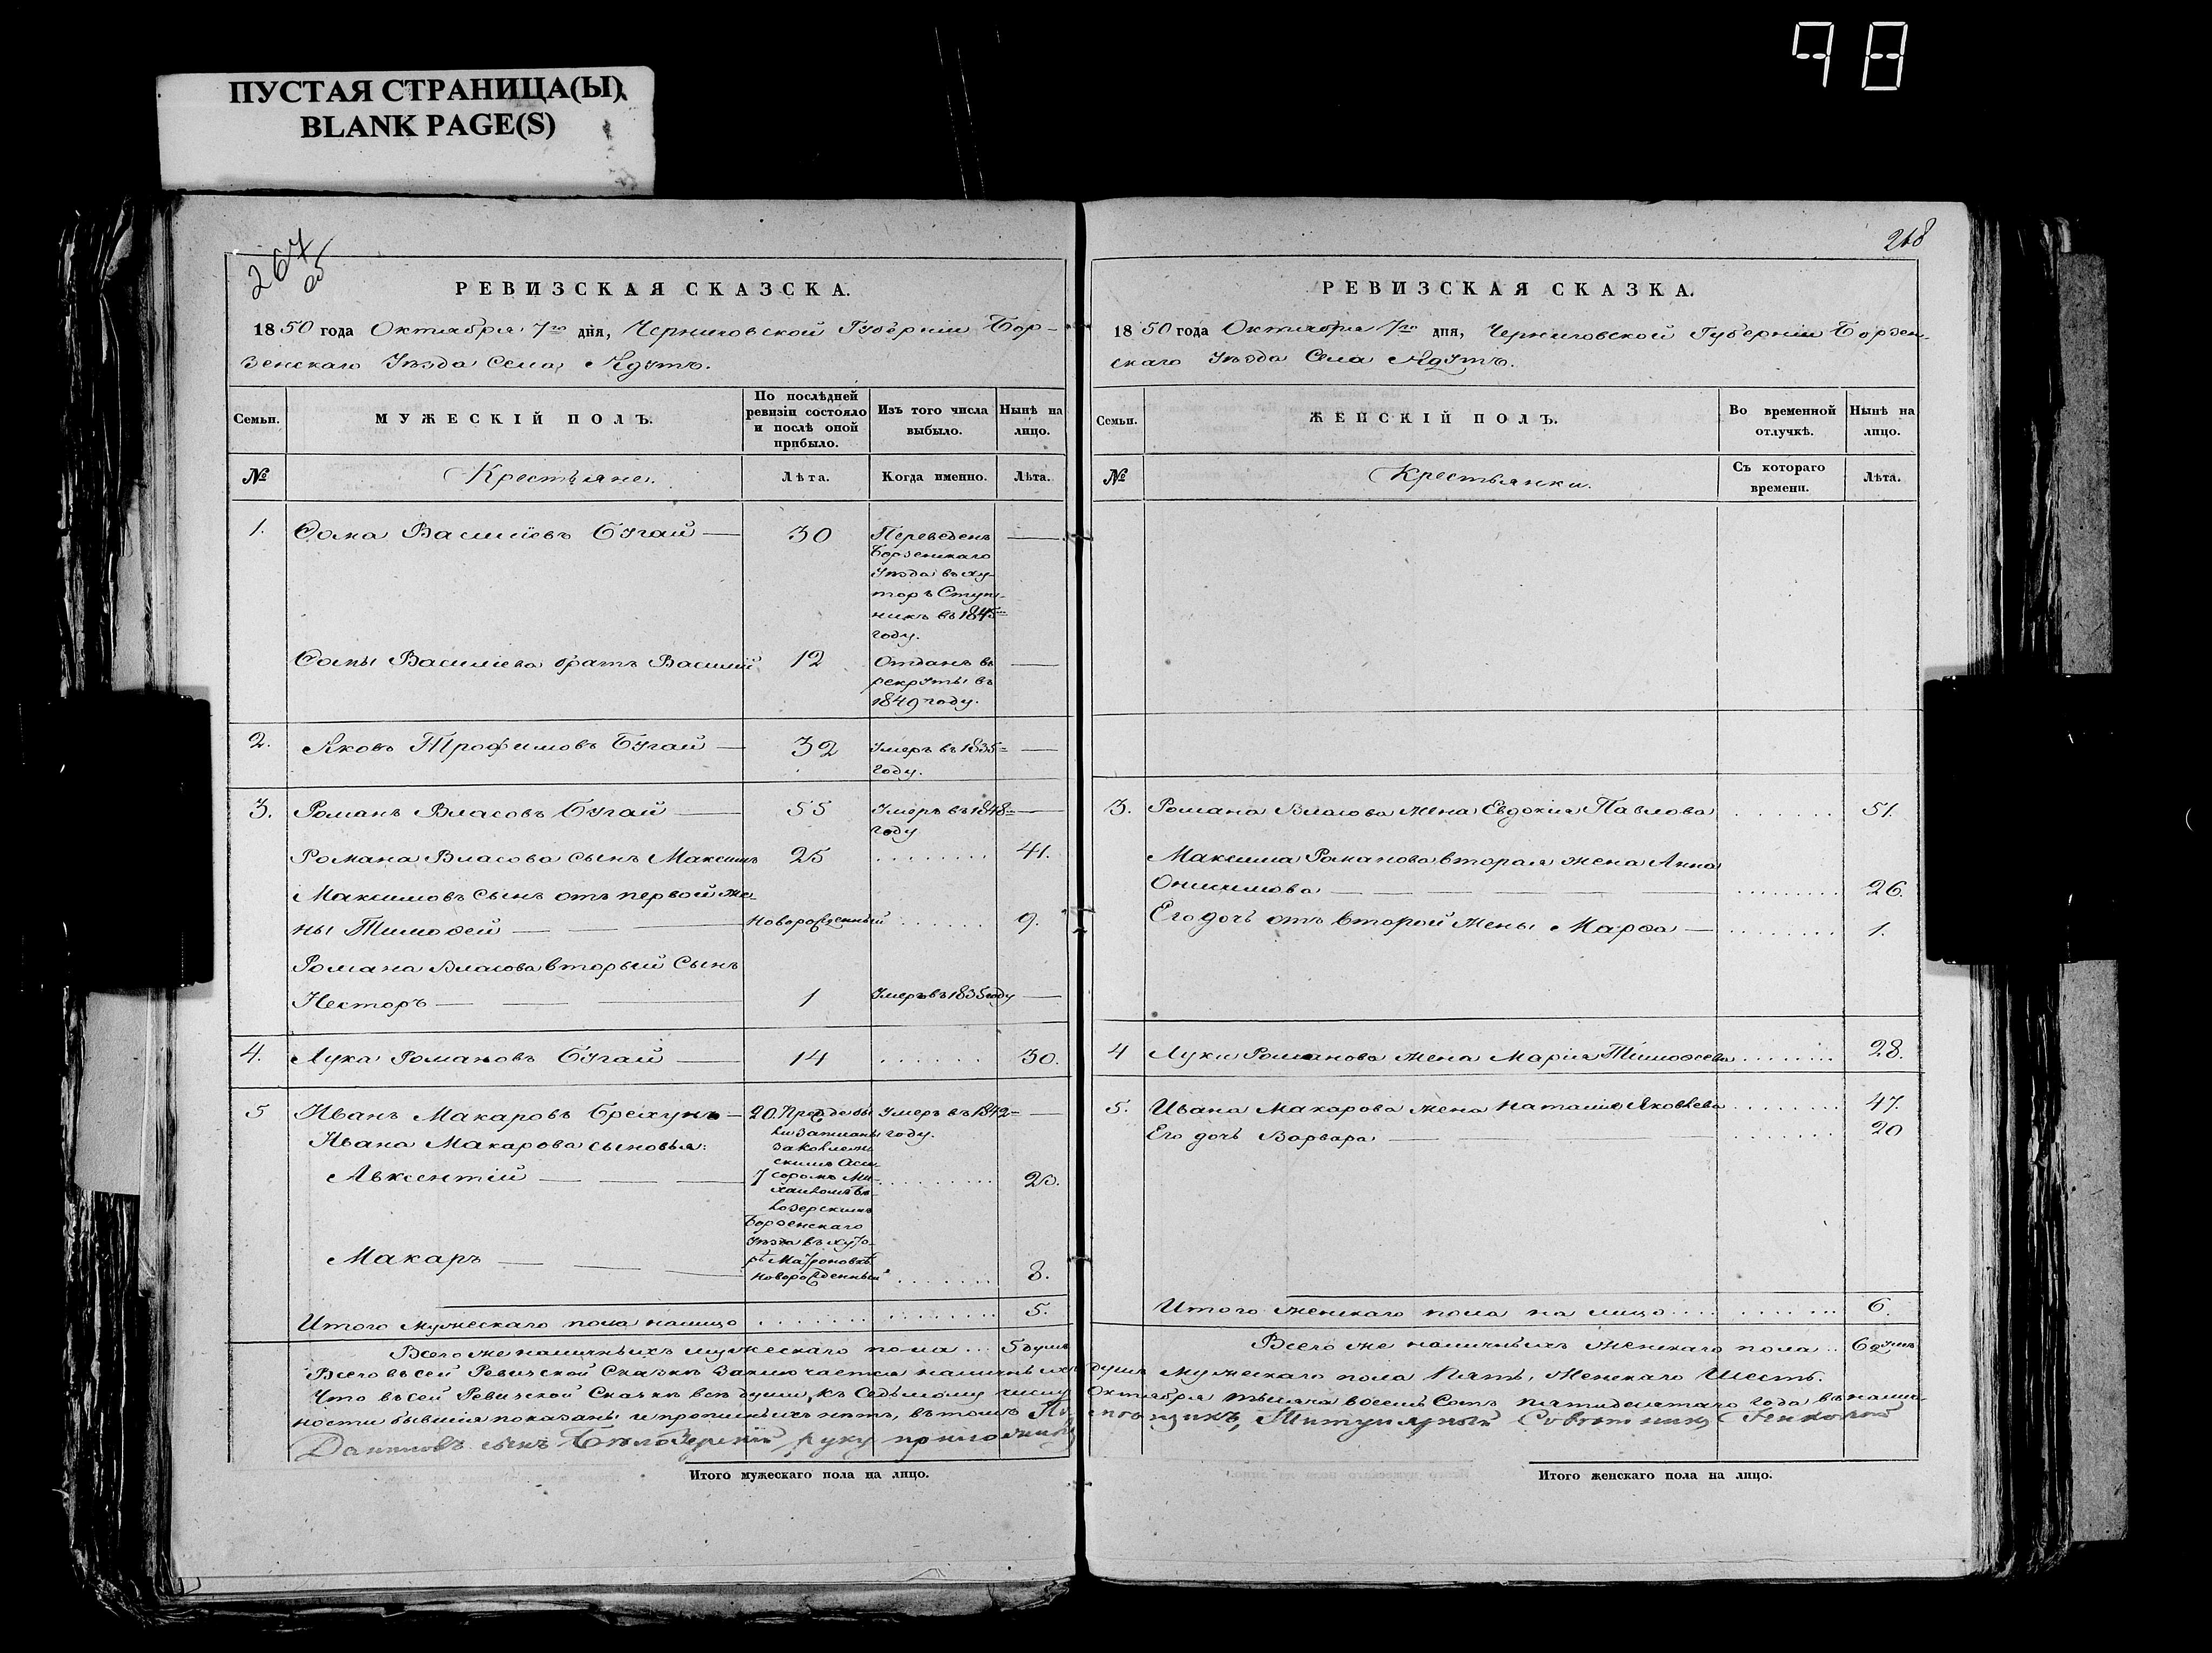 98
ПУСТАЯ СТРАНИЦА(Ы)
BLANK PAGE(S)
267
об
РЕВИЗСКАЯ СКАЗСКА.
1850 года Октября 7го дня, Черниговской Губерніи Бор-
зенскаго Уѣзда Села Ядутъ.
Семьи.
МУЖЕСКІЙ ПОЛЪ.
По послѣдней ревизіи состояло и послѣ оной прибыло.
Изъ того числа выбыло.
Нынѣ на лицо.
№
Крестьяне.
Лѣта.
Когда именно.
Лѣта.
1. Ѳома Василіевъ Бугай — 30 Переведенъ —
Борзенскаго
Уѣзда въ ху-
торъ Ступ-
никъ въ 1845м
году.
Ѳомы Василіева братъ Василій 12 Отданъ въ —
рекруты въ
1849 году.
2. Яковъ Трофимовъ Бугай — 32 Умеръ въ 1835 —
году.
3. Романъ Власовъ Бугай — 55 Умеръ въ 1848 —
году
Романа Власова сынъ Максимъ 25 ........ 41.
Максимовъ сынъ отъ первой же-
ны Тимоѳей — новорожденный ...... 9.
Романа Власова вторый Сынъ
Несторъ — 1 Умеръ въ 1835 году —
4. Лука Романовъ Бугай — 14 ...... 30.
5 Иванъ Макаровъ Брехунъ — 20. Умеръ въ 1842 —
году.
Ивана Макарова сыновья:
Авксентій — 7 ........
Борзенскаго
Уѣзда въ хуто-
Макаръ — новорожденный ...... 8.
Итого мужескаго пола налицо ........ 5.
Всего же наличныхъ мужескаго пола ... 5 душъ
Итого мужескаго пола на лицо.
268
РЕВИЗСКАЯ СКАЗКА.
1850 года Октября 7го дня, Черниговской Губерніи Борзен-
скаго Уѣзда Села Ядутъ.
Семьи.
ЖЕНСКІЙ ПОЛЪ.
Во временной отлучкѣ.
Нынѣ на лицо.
№
Крестьянки.
Съ котораго времени.
Лѣта.
3. Романа Власова жена Евдокія Павлова ...... 51.
Максима Романова вторая жена Анна
Онисимова — ........ 26.
Его дочь отъ второй жены Марѳа — ........ 1.
4 Луки Романова жена Марія Тимоѳеева ........ 28.
5. Ивана Макарова жена Наталія Яковлева ........ 47.
Его дочь Варвара — ...... 20
Итого женскаго пола на лицо .... 6.
Всего же наличныхъ женскаго пола .. 6 душъ
Всего въ сей Ревизской Сказкѣ заключается наличныхъ душъ мужескаго пола Пять, Женскаго Шесть.
Что въ сей Ревизской Сказкѣ всѣ души, къ Седьмому числу Октября тысяча восемь Сотъ пятидесятаго года въ налич-
ности бывшія показаны и прописныхъ нѣтъ, въ томъ Титулярный Совѣтникъ
Даниловъ сынъ Бѣлозерскій руку приложилъ
Итого женскаго пола на лицо.